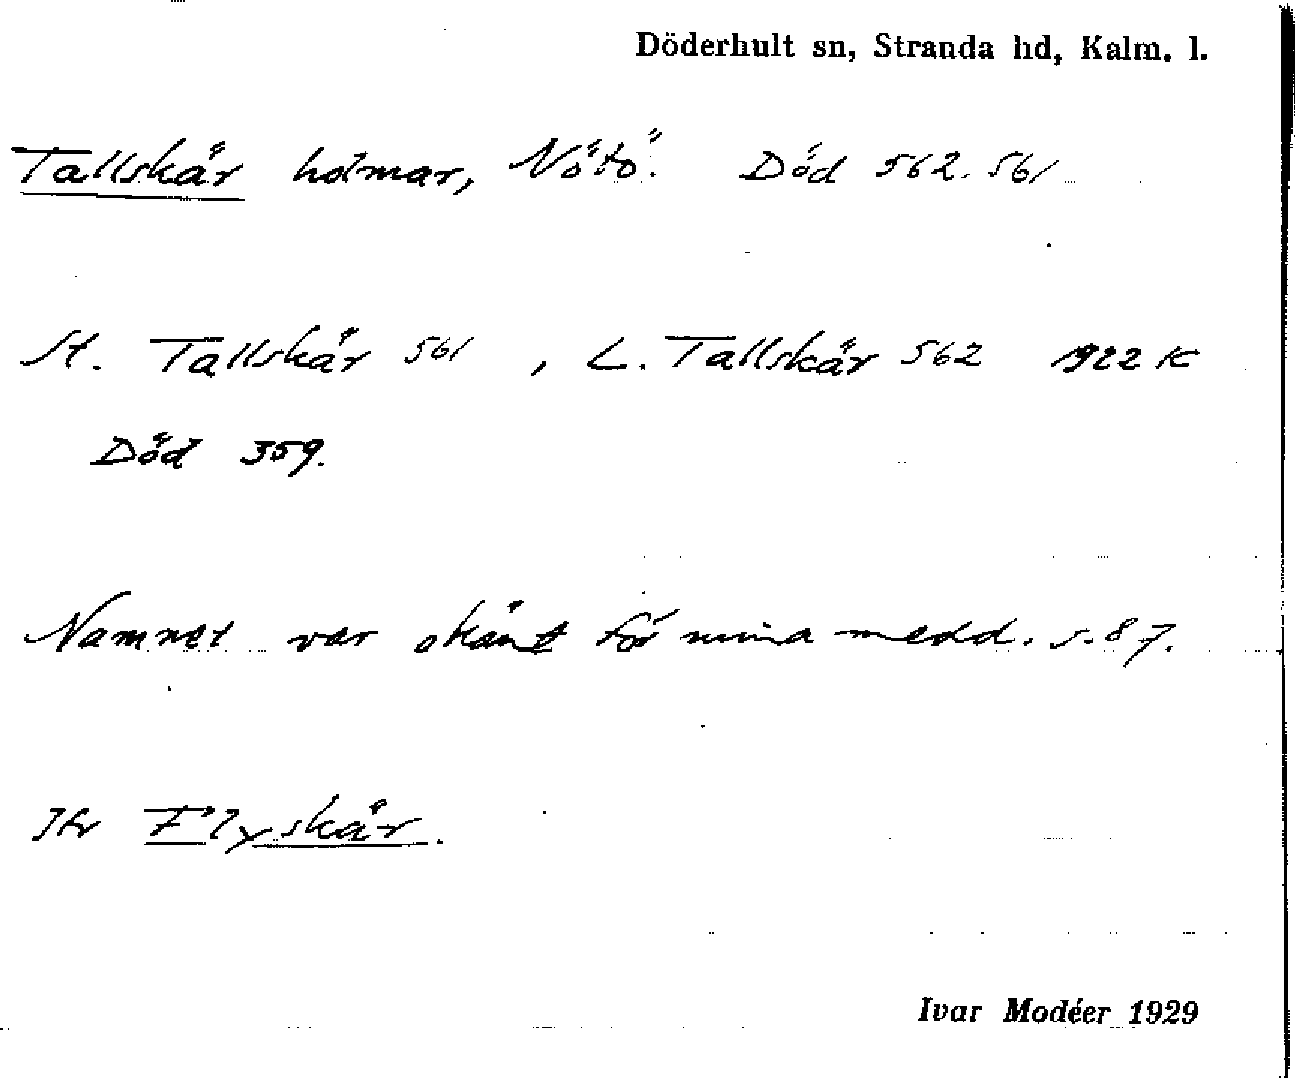 Döderhult sn, Stranda hd, Kalm. l.
Tallskär holmar, Nötö. Död 562. 561
St. Tallskär 561, L. Tallskär 562 1922 K
Död 359.
Namnet var okänt för mina medd. s. 87.
Jfr Flyskär.
Ivar Modéer 1929